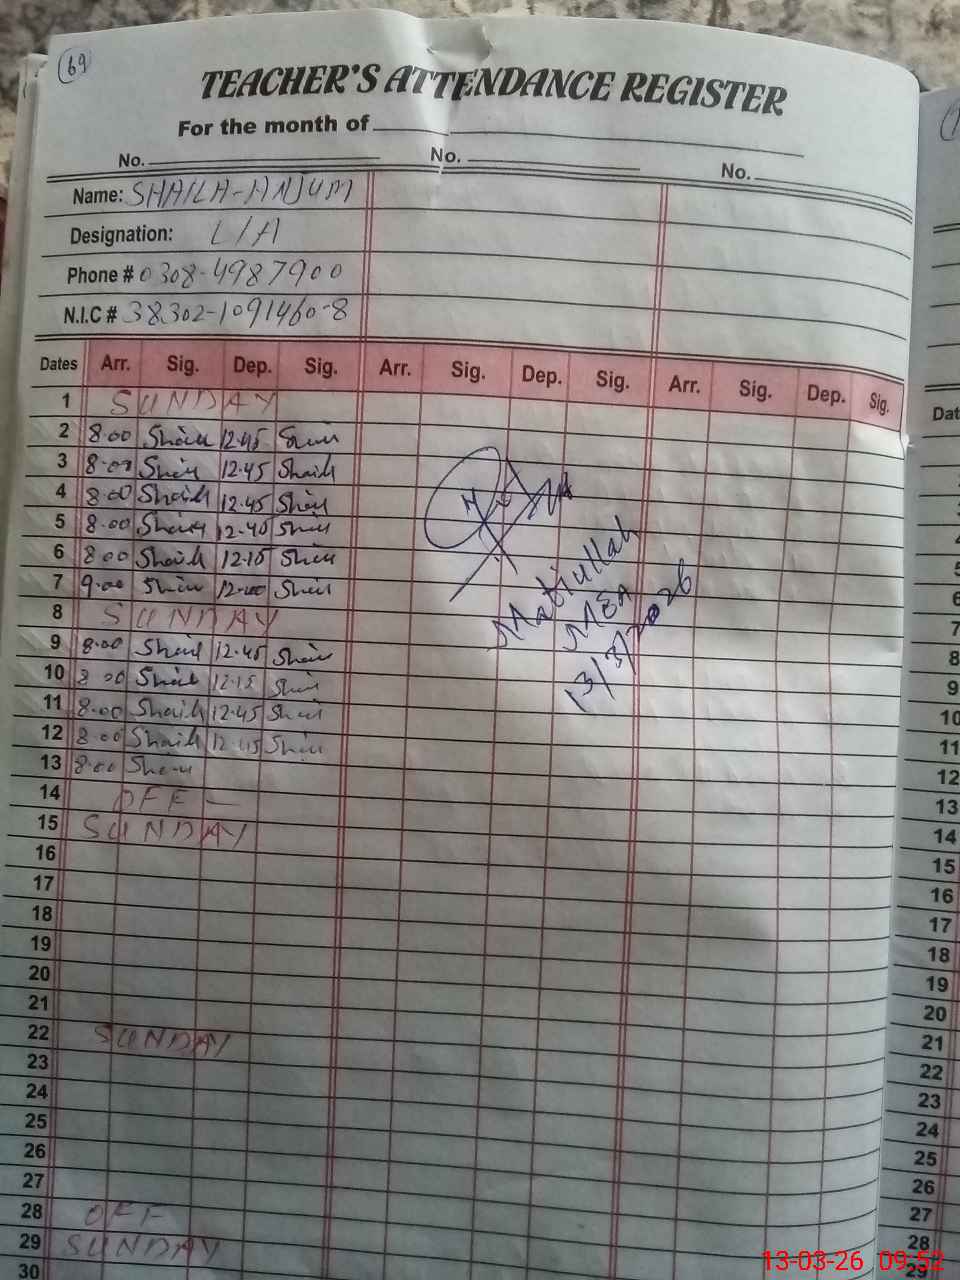 69
TEACHER'S ATTENDANCE REGISTER
For the month of
No. No. No.
Name: SHAILA-ANJUM
Designation: L/A
Phone # 0308-4987900
N.I.C # 38302-1091460-8
Dates Arr. Sig. Dep. Sig. Arr. Sig. Dep. Sig. Arr. Sig. Dep. Sig.
1 SUNDAY
2 8.00 12.45
3 8.00 12.45 Shaila
4 8.00 Shaila 12.45
5 8.00 12.40
6 8.00 Shaila 12.15
7 9.00 12.00
8 SUNDAY
9 8.00 12.45
10 8 00 12.15
11 8.00 Shaila 12.45
12 8.00 Shaila 12.45
13 8.00
14 OFF -
15 SUNDAY
16
17
18
19
20
21
22 SUNDAY
23
24
25
26
27
28 OFF
29 SUNDAY
30
Matiullah
MEA
13/3/2026
Dat
5
6
7
8
9
10
11
12
13
14
15
16
17
18
19
20
21
22
23
24
25
26
27
28
29
13-03-26 09:52